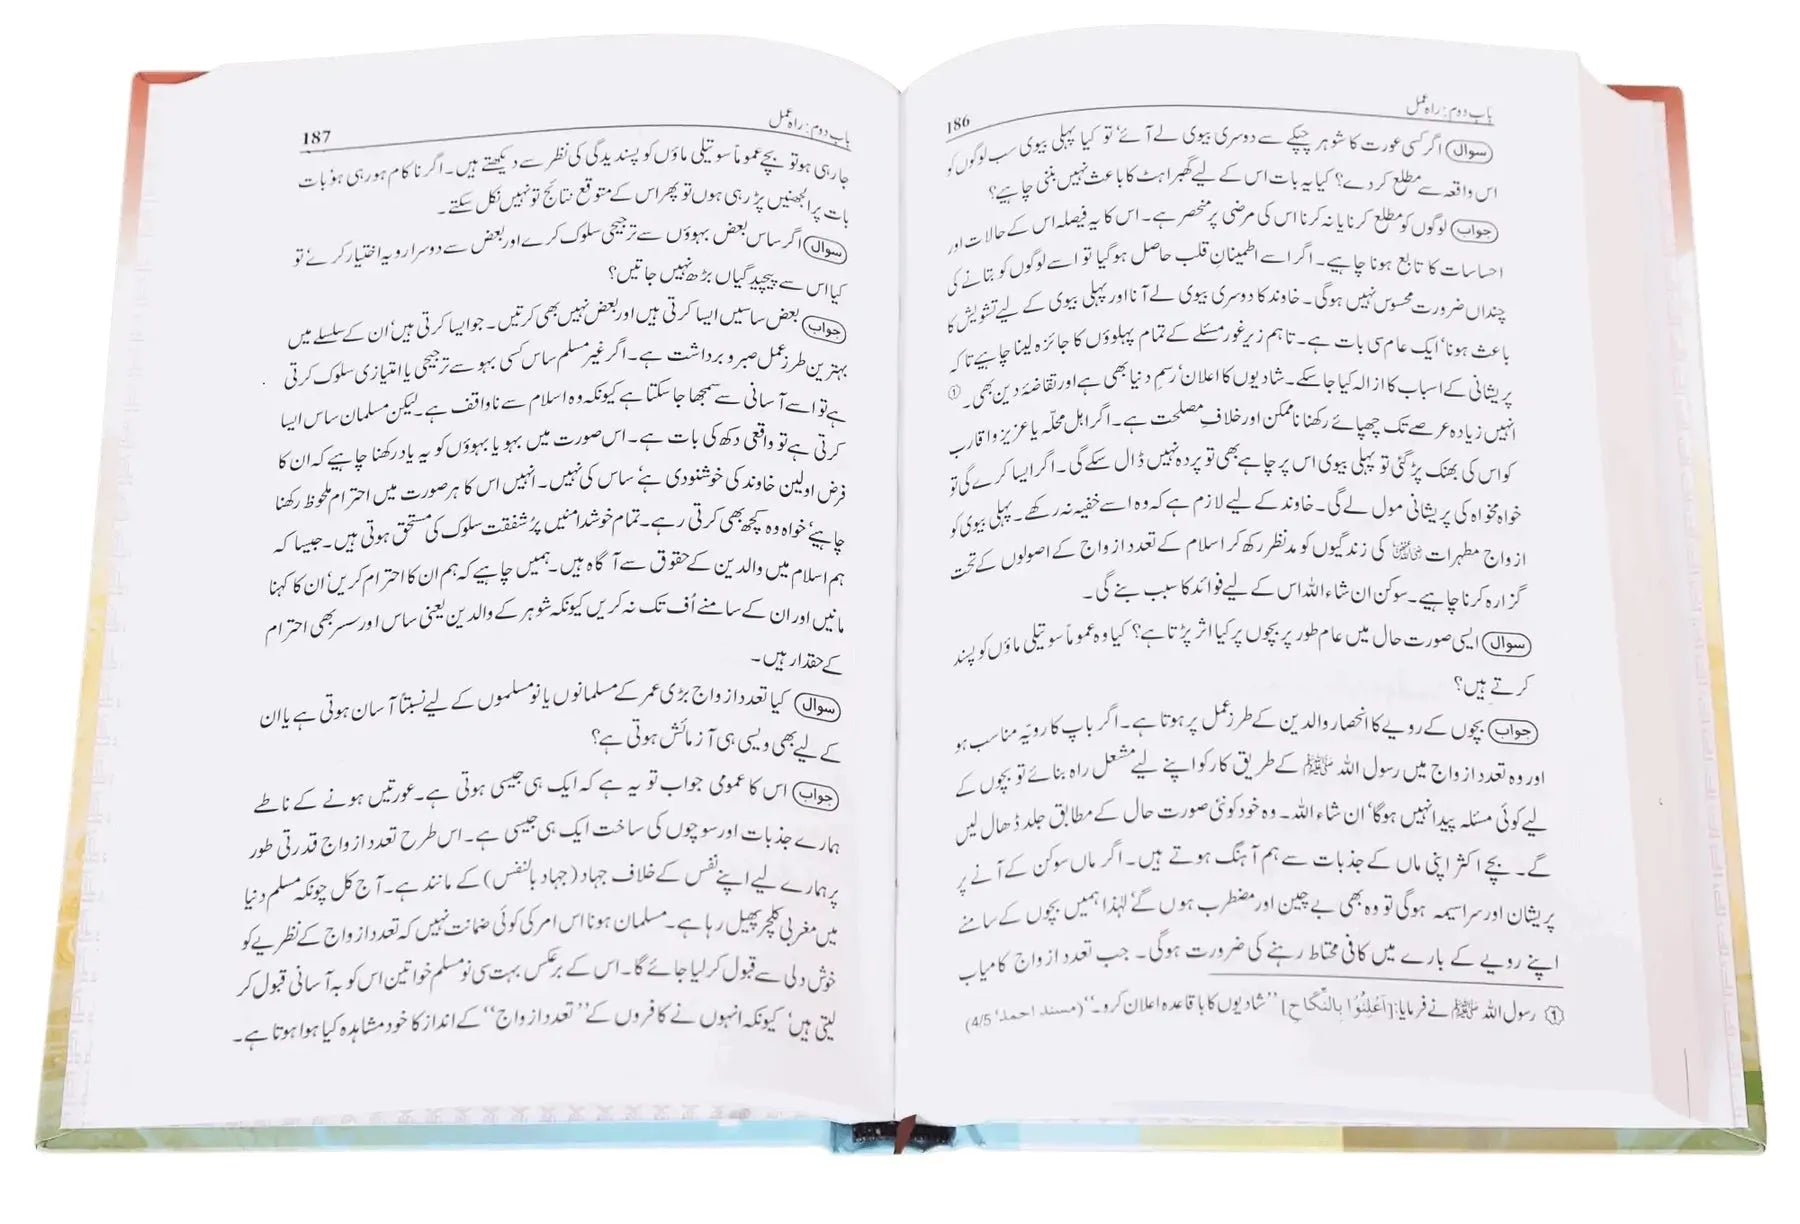 باب دوم: راہ عمل
186
سوال اگر کسی عورت کا شوہر چپکے سے دوسری بیوی لے آئے‘ تو کیا پہلی بیوی سب لوگوں کو
اس واقعہ سے مطلع کر دے؟ کیا یہ بات اس کے لیے گھبراہٹ کا باعث نہیں بننی چاہیے؟
جواب لوگوں کو مطلع کرنا یا نہ کرنا اس کی مرضی پر منحصر ہے۔ اس کا یہ فیصلہ اس کے حالات اور
احساسات کا تابع ہونا چاہیے۔ اگر اسے اطمینانِ قلب حاصل ہوگیا تو اسے لوگوں کو بتانے کی
چنداں ضرورت محسوس نہیں ہوگی۔ خاوند کا دوسری بیوی لے آنا اور پہلی بیوی کے لیے تشویش کا
باعث ہونا‘ ایک عام سی بات ہے۔ تاہم زیر غور مسئلے کے تمام پہلوؤں کا جائزہ لینا چاہیے تاکہ
پریشانی کے اسباب کا ازالہ کیا جاسکے۔ شادیوں کا اعلان‘ رسمِ دنیا بھی ہے اور تقاضۂ دین بھی۔ ①
انہیں زیادہ عرصے تک چھپائے رکھنا ناممکن اور خلافِ مصلحت ہے۔ اگر اہل محلّہ یا عزیز واقارب
کو اس کی بھنک پڑ گئی تو پہلی بیوی اس پر چاہے بھی تو پردہ نہیں ڈال سکے گی۔ اگر ایسا کرے گی تو
خواہ مخواہ کی پریشانی مول لے گی۔ خاوند کے لیے لازم ہے کہ وہ اسے خفیہ نہ رکھے۔ پہلی بیوی کو
ازواج مطہرات کی زندگیوں کو مدنظر رکھ کر اسلام کے تعدد ازواج کے اصولوں کے تحت
گزارہ کرنا چاہیے۔ سوکن ان شاء اللہ اس کے لیے فوائد کا سبب بنے گی۔
سوال ایسی صورت حال میں عام طور پر بچوں پر کیا اثر پڑتا ہے؟ کیا وہ عموماً سوتیلی ماؤں کو پسند
کرتے ہیں؟
جواب بچوں کے رویے کا انحصار والدین کے طرز عمل پر ہوتا ہے۔ اگر باپ کا رویّہ مناسب ہو
اور وہ تعدد ازواج میں رسول اللہ ﷺ کے طریق کار کو اپنے لیے مشعل راہ بنائے تو بچوں کے
لیے کوئی مسئلہ پیدا نہیں ہوگا‘ ان شاء اللہ۔ وہ خود کو نئی صورت حال کے مطابق جلد ڈھال لیں
گے۔ بچے اکثر اپنی ماں کے جذبات سے ہم آہنگ ہوتے ہیں۔ اگر ماں سوکن کے آنے پر
پریشان اور سراسیمہ ہوگی تو وہ بھی بے چین اور مضطرب ہوں گے‘ لہٰذا ہمیں بچوں کے سامنے
اپنے رویے کے بارے میں کافی محتاط رہنے کی ضرورت ہوگی۔ جب تعدد ازواج کامیاب
① رسول اللہ ﷺ نے فرمایا: [اَعْلِنُوْا بِالنِّكَاحِ] ’’شادیوں کا باقاعدہ اعلان کرو۔‘‘ (مسند احمد‘ 4/5)
باب دوم: راہ عمل
187
جارہی ہو تو بچے عموماً سوتیلی ماؤں کو پسندیدگی کی نظر سے دیکھتے ہیں۔ اگر ناکام ہورہی ہو‘ بات
بات پر الجھنیں پڑ رہی ہوں تو پھر اس کے متوقع نتائج تو نہیں نکل سکتے۔
سوال اگر ساس بعض بہوؤں سے ترجیحی سلوک کرے اور بعض سے دوسرا رویہ اختیار کرے‘ تو
کیا اس سے پیچیدگیاں بڑھ نہیں جاتیں؟
جواب بعض ساسیں ایسا کرتی ہیں اور بعض نہیں بھی کرتیں۔ جو ایسا کرتی ہیں‘ ان کے سلسلے میں
بہترین طرز عمل صبر و برداشت ہے۔ اگر غیر مسلم ساس کسی بہو سے ترجیحی یا امتیازی سلوک کرتی
ہے تو اسے آسانی سے سمجھا جاسکتا ہے کیونکہ وہ اسلام سے ناواقف ہے۔ لیکن مسلمان ساس ایسا
کرتی ہے تو واقعی دکھ کی بات ہے۔ اس صورت میں بہو یا بہوؤں کو یہ یاد رکھنا چاہیے کہ ان کا
فرض اولین خاوند کی خوشنودی ہے‘ ساس کی نہیں۔ انہیں اس کا ہر صورت میں احترام ملحوظ رکھنا
چاہیے‘ خواہ وہ کچھ بھی کرتی رہے۔ تمام خوشدامنیں پرُشفقت سلوک کی مستحق ہوتی ہیں۔ جیسا کہ
ہم اسلام میں والدین کے حقوق سے آگاہ ہیں۔ ہمیں چاہیے کہ ہم ان کا احترام کریں‘ ان کا کہنا
مانیں اور ان کے سامنے اُف تک نہ کریں کیونکہ شوہر کے والدین یعنی ساس اور سسر بھی احترام
کے حقدار ہیں۔
سوال کیا تعدد ازواج بڑی عمر کے مسلمانوں یا نومسلموں کے لیے نسبتاً آسان ہوتی ہے یا ان
کے لیے بھی ویسی ہی آزمائش ہوتی ہے؟
جواب اس کا عمومی جواب تو یہ ہے کہ ایک ہی جیسی ہوتی ہے۔ عورتیں ہونے کے ناطے
ہمارے جذبات اور سوچوں کی ساخت ایک ہی جیسی ہے۔ اس طرح تعدد ازواج قدرتی طور
پر ہمارے لیے اپنے نفس کے خلاف جہاد (جہاد بالنفس) کے مانند ہے۔ آج کل چونکہ مسلم دنیا
میں مغربی کلچر پھیل رہا ہے۔ مسلمان ہونا اس امر کی کوئی ضمانت نہیں کہ تعدد ازواج کے نظریے کو
خوش دلی سے قبول کرلیا جائے گا۔ اس کے برعکس بہت سی نومسلم خواتین اس کو بہ آسانی قبول کر
لیتی ہیں‘ کیونکہ انہوں نے کافروں کے ’’تعدد ازواج‘‘ کے انداز کا خود مشاہدہ کیا ہوا ہوتا ہے۔